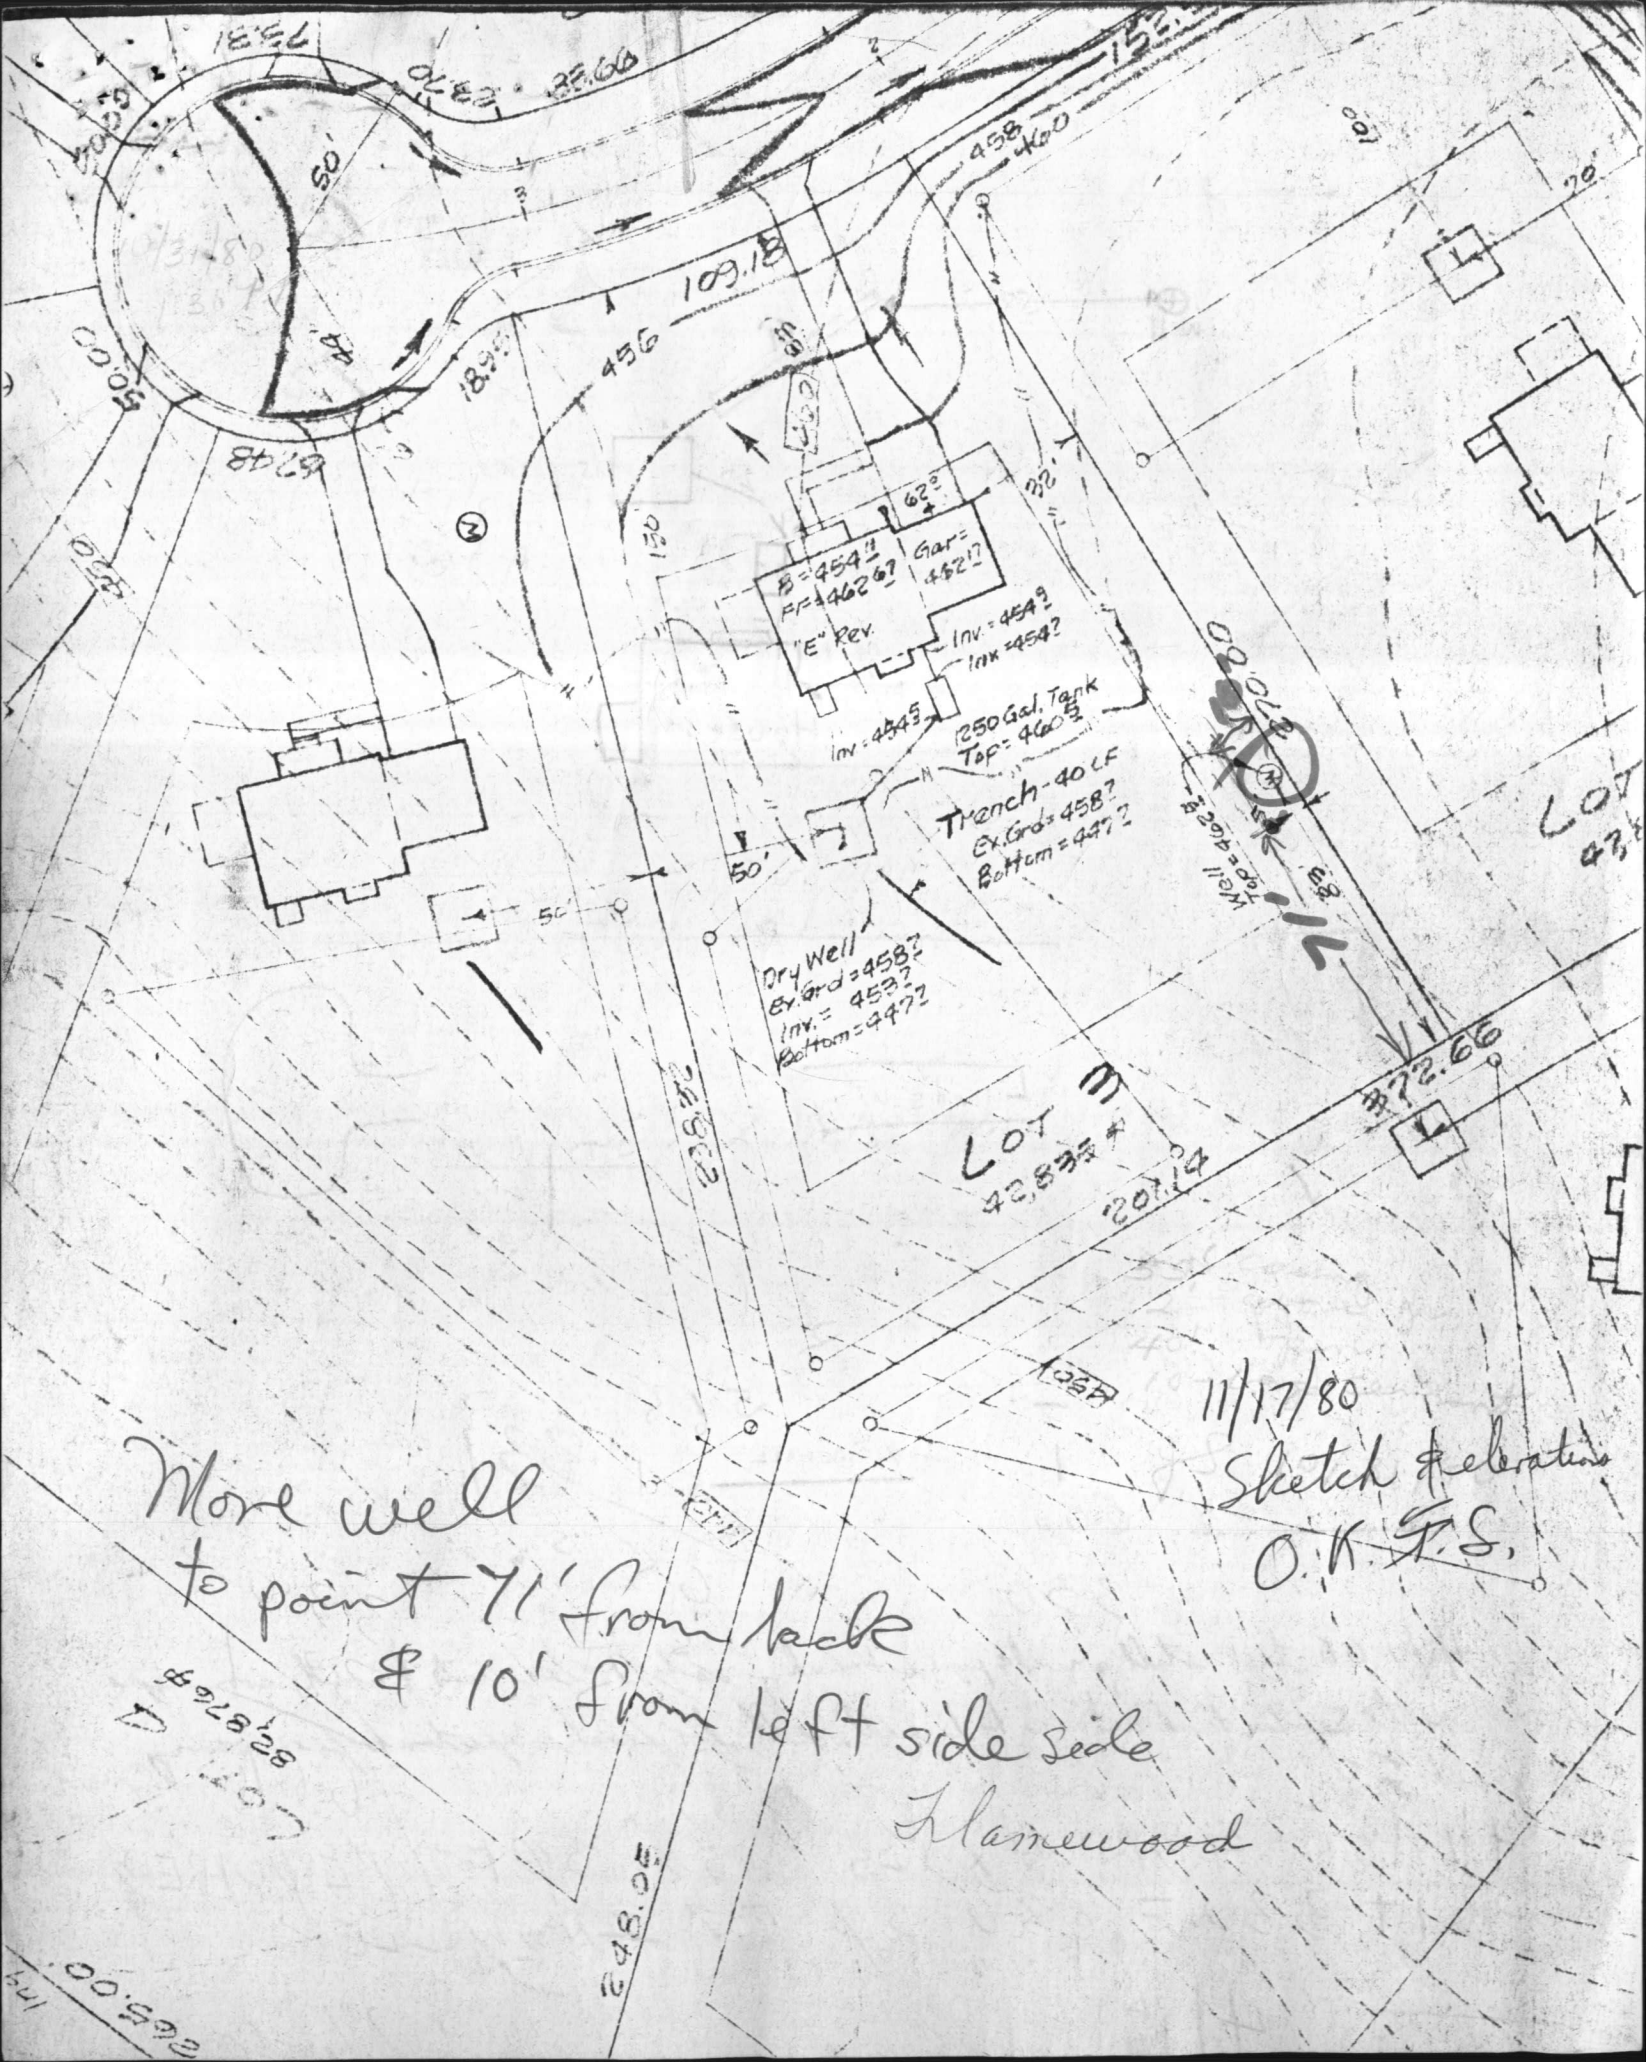 73.31
23.70
35.66
152.
50.00
50'
3
2
458
460
20'
109.18
456
18.95
50.00
67.48
M
32'
62⁰
B=454⁴
FF=462⁶⁷
Gar=
462¹⁷
"E" Rev.
Inv.=454⁹
Inv.=454⁷
Inv.=454⁵
1250 Gal. Tank
Top=460⁵
Trench-40 LF
Ex.Grd=458⁷
Bottom=447⁷
270.00
W
Well
Top=462.5
50'
50'
Dry Well
Ex.Grd=458⁷
Inv.= 453⁷
Bottom=447⁷
71'
LOT
LOT 3
238.32
372.66
201.14
450
442
11/17/80
Sketch & elevations
O.K. F.S.
Move well
to point 71' from back
& 10' from left side side
Flamewood
LOT
82,876
248.05
265.00